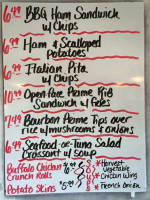 6.49 BBQ Ham Sandwich
w/Chips
6.99 Ham & Scalloped
Potatoes
6.99 Italian Pita
w/Chips
10.99 Open-face Prime Rib
Sandwich w/Fries
7.49 Bourbon Prime Tips over
rice w/mushrooms & onions
6.99 Seafood or Tuna Salad
Croissant w/soup
Buffalo Chicken $6.99
Crunch Rolls
Potato Skins $5.99
* Harvest
Vegetable
* Chicken Wing
* French Onion